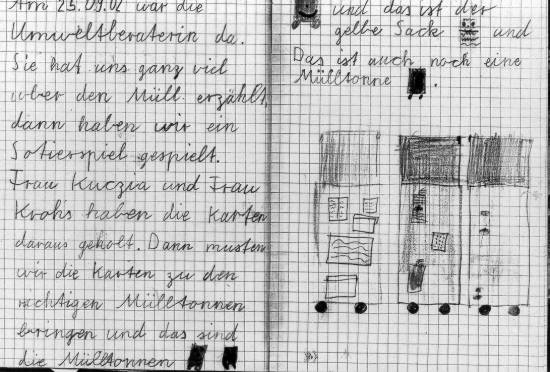 Am 25.09.02 war die
Umweltberaterin da.
Sie hat uns ganz viel
über den Müll erzählt,
dann haben wir ein
Sotierspiel gespielt.
Frau Kuczia und Frau
Krohs haben die Karten
daraus geholt. Dann musten
wir die Karten zu den
richtigen Mülltonnen
bringen und das sind
die Mülltonnen
und das ist der
gelbe Sack und
Das ist auch noch eine
Mülltonne .